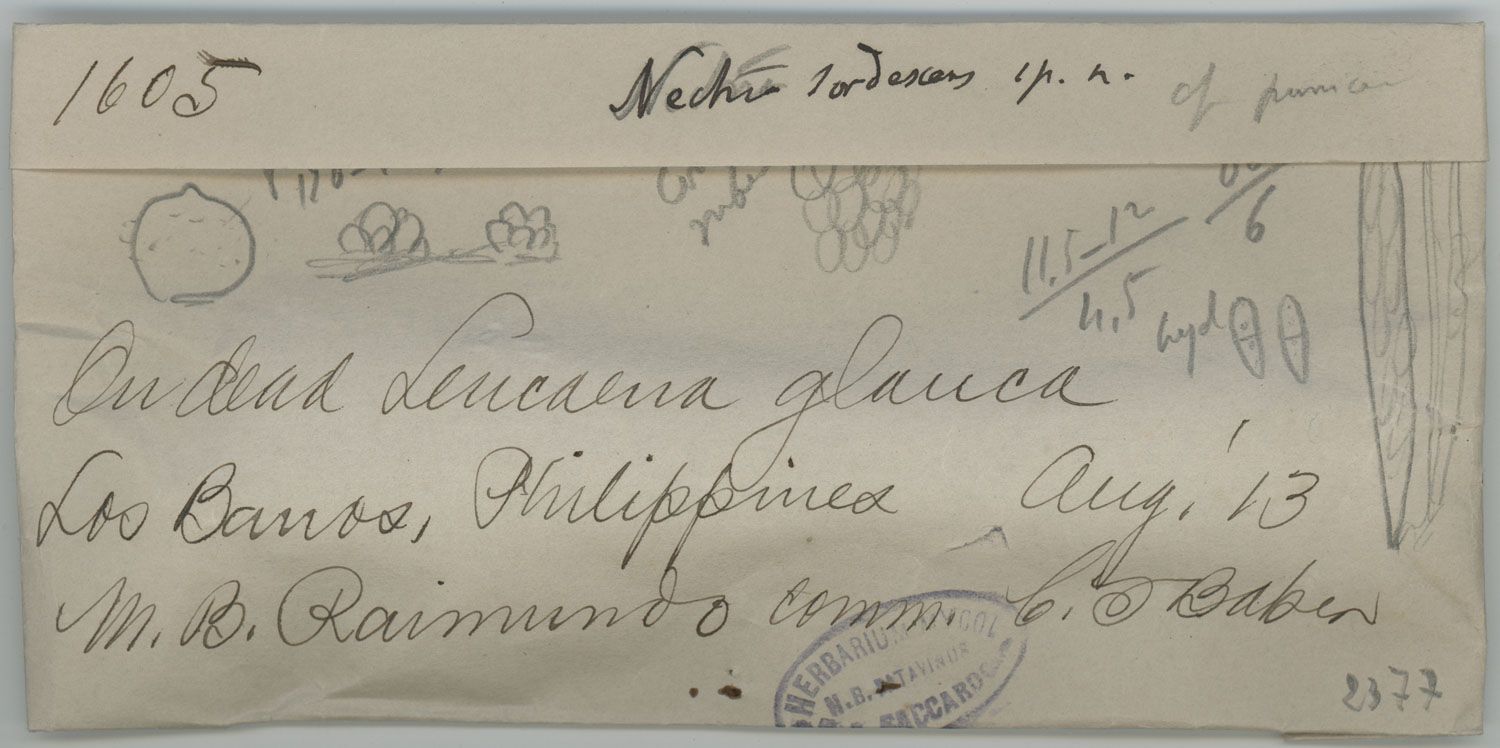 1605 Nectria sordescens sp. n. cf
11.5–12
4,5
6
hyd
On dead Leucaena glauca
Los Banos, Philippines Aug. '13
M. B. Raimundo comm. C. F. Baker
HERBARIUM MYCOL
H.B. PATAVINUM
SACCARDO
2377